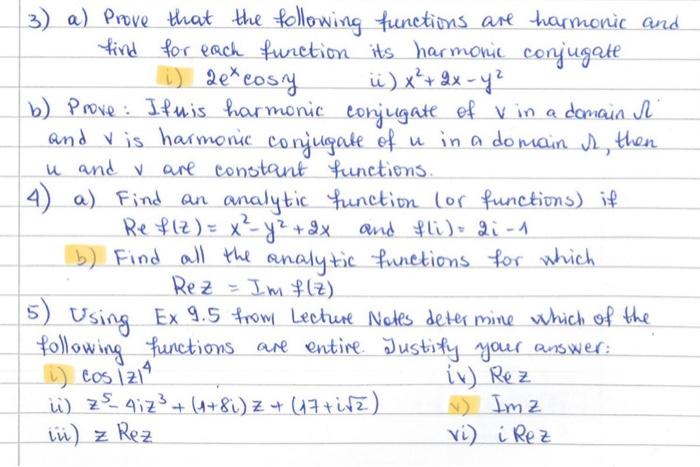 3) a) Prove that the following functions are harmonic and
find for each function its harmonic conjugate
i) 2eˣcosy ii) x²+2x-y²
b) Prove: If u is harmonic conjugate of v in a domain Ω
and v is harmonic conjugate of u in a domain Ω, then
u and v are constant functions.
4) a) Find an analytic function (or functions) if
Re f(z) = x²-y²+2x and f(i) = 2i-1
b) Find all the analytic functions for which
Re z = Im f(z)
5) Using Ex 9.5 from Lecture Notes determine which of the
following functions are entire. Justify your answer:
i) cos|z|⁴ iv) Re z
ii) z⁵-4iz³+(1+8i)z+(17+i√2) v) Im z
iii) z Re z vi) i Re z